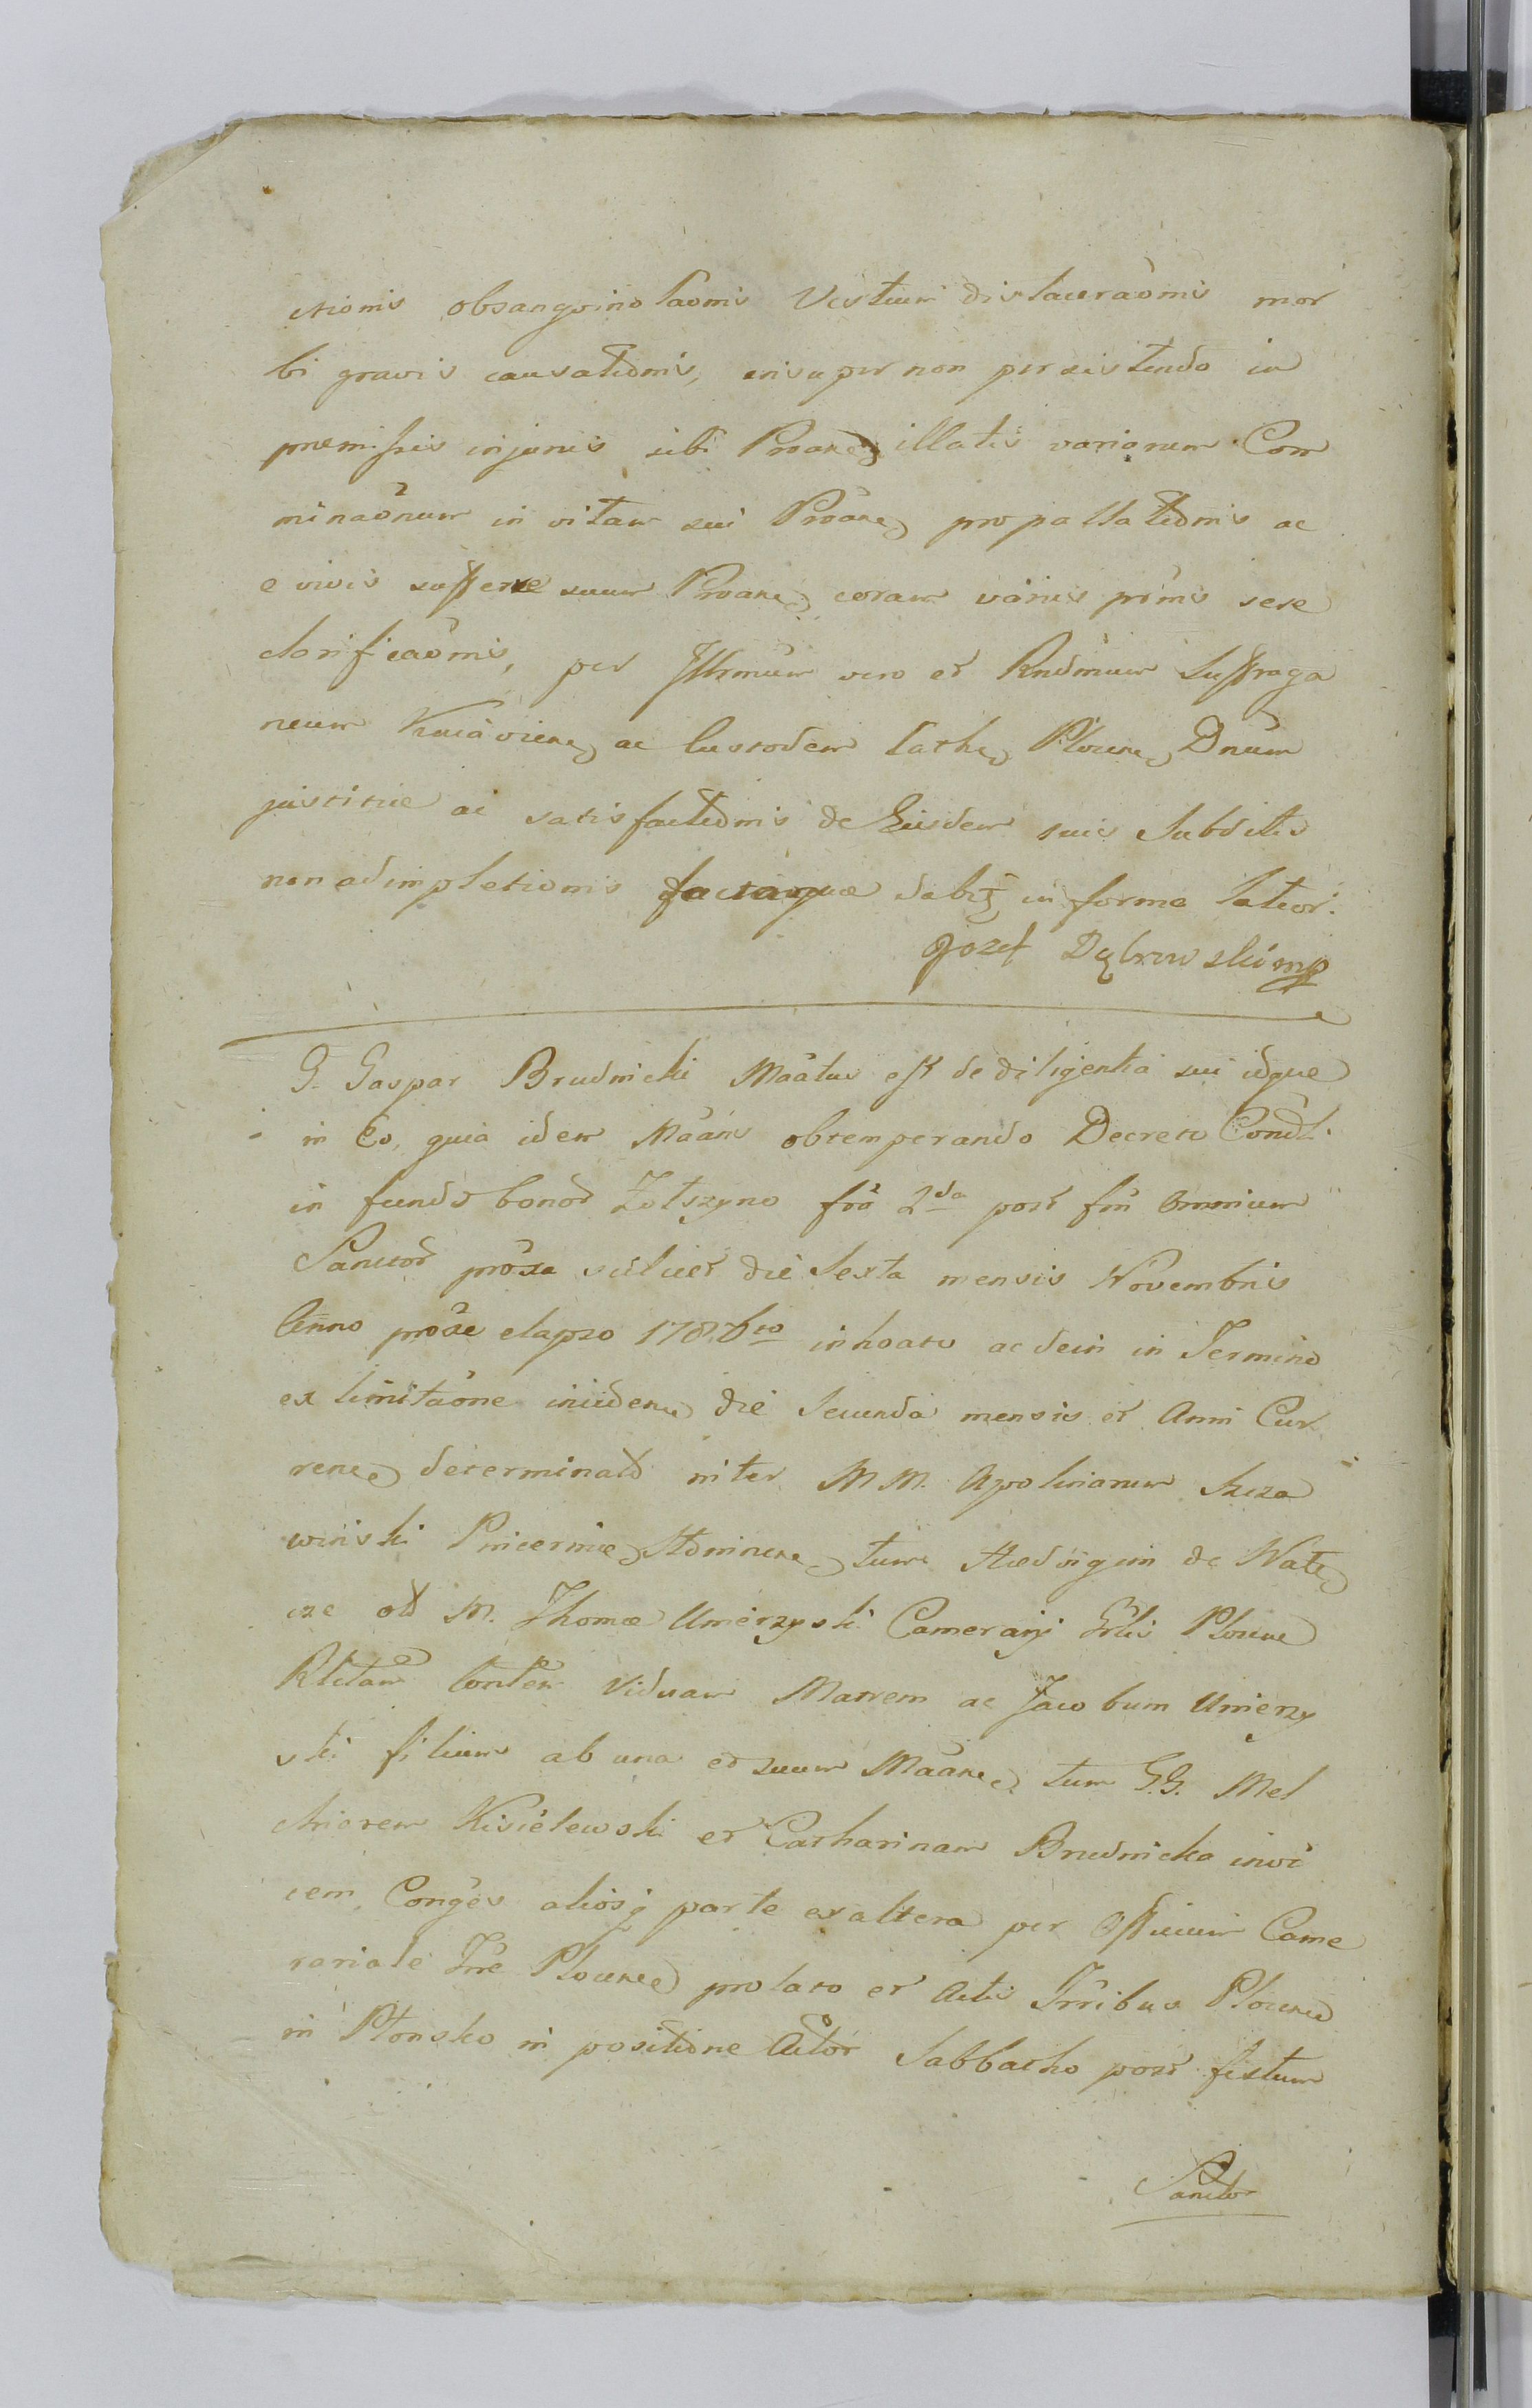 ctionis obsangvinolaõnis Vestium dislaceraõnis mor
bi gravis causatiõnis, insuper non persistendo in
premissis injuriis sibi Proãnẽ illatis variarum Com
minaõnum in vitam sui Proãnẽ propallatiõnis ac
e vivis sufferre suum Proãnẽ coram variis prõnis sese
clarificaõnis, per Illrmũm vero et Rndmũm Suffraga
neum Kujavienẽ ac Custodem Cathẽ Plocenẽ Dnũm
justitiæ ac satisfactiõnis de Eisdem suis Subditis
non adimpletionis factarque dabit̃ in forma latior.
Jozef Dąbrowski mp
G. Gaspar Brudnicki Maãtus est de diligentia sui idque
in Eo, quia idem Maãns obtemperando Decreto Condl.
in fundo bonoř Zolszyno frõ 2da post fm̃ Omnium
Sanctoř prõxa scilicet die Sexta mensis Novembris
Anno prõxe elapso 1786to inhoato ac dein in Termino
ex limitaõne incidenẽ die Secunda mensis et Anni Cur
renẽ determinato inter M M. Apolinarum Szcza
wiński Pincernæ Hominenẽ tum Hedvigim de Natẽ
cze olĩ M. Thomæ Umierzyski Camerarii Grlis Plocenẽ
Rlictam̃ Conltẽm Viduam Matrem ac Jacobum Umierzy
ski filium ab una et suum Maãnẽ tum G.G. Mel
chiorem Kisielewski et Catharinam Brudnicka invi
cem Congẽs aliosq parte ex altera per Officium Came
rariale Trrẽ Plocenẽ prolato et Actis Trribus Plocenẽ
in Płonsko in positiõne Actoř Sabbatho post festum
Sanctoř